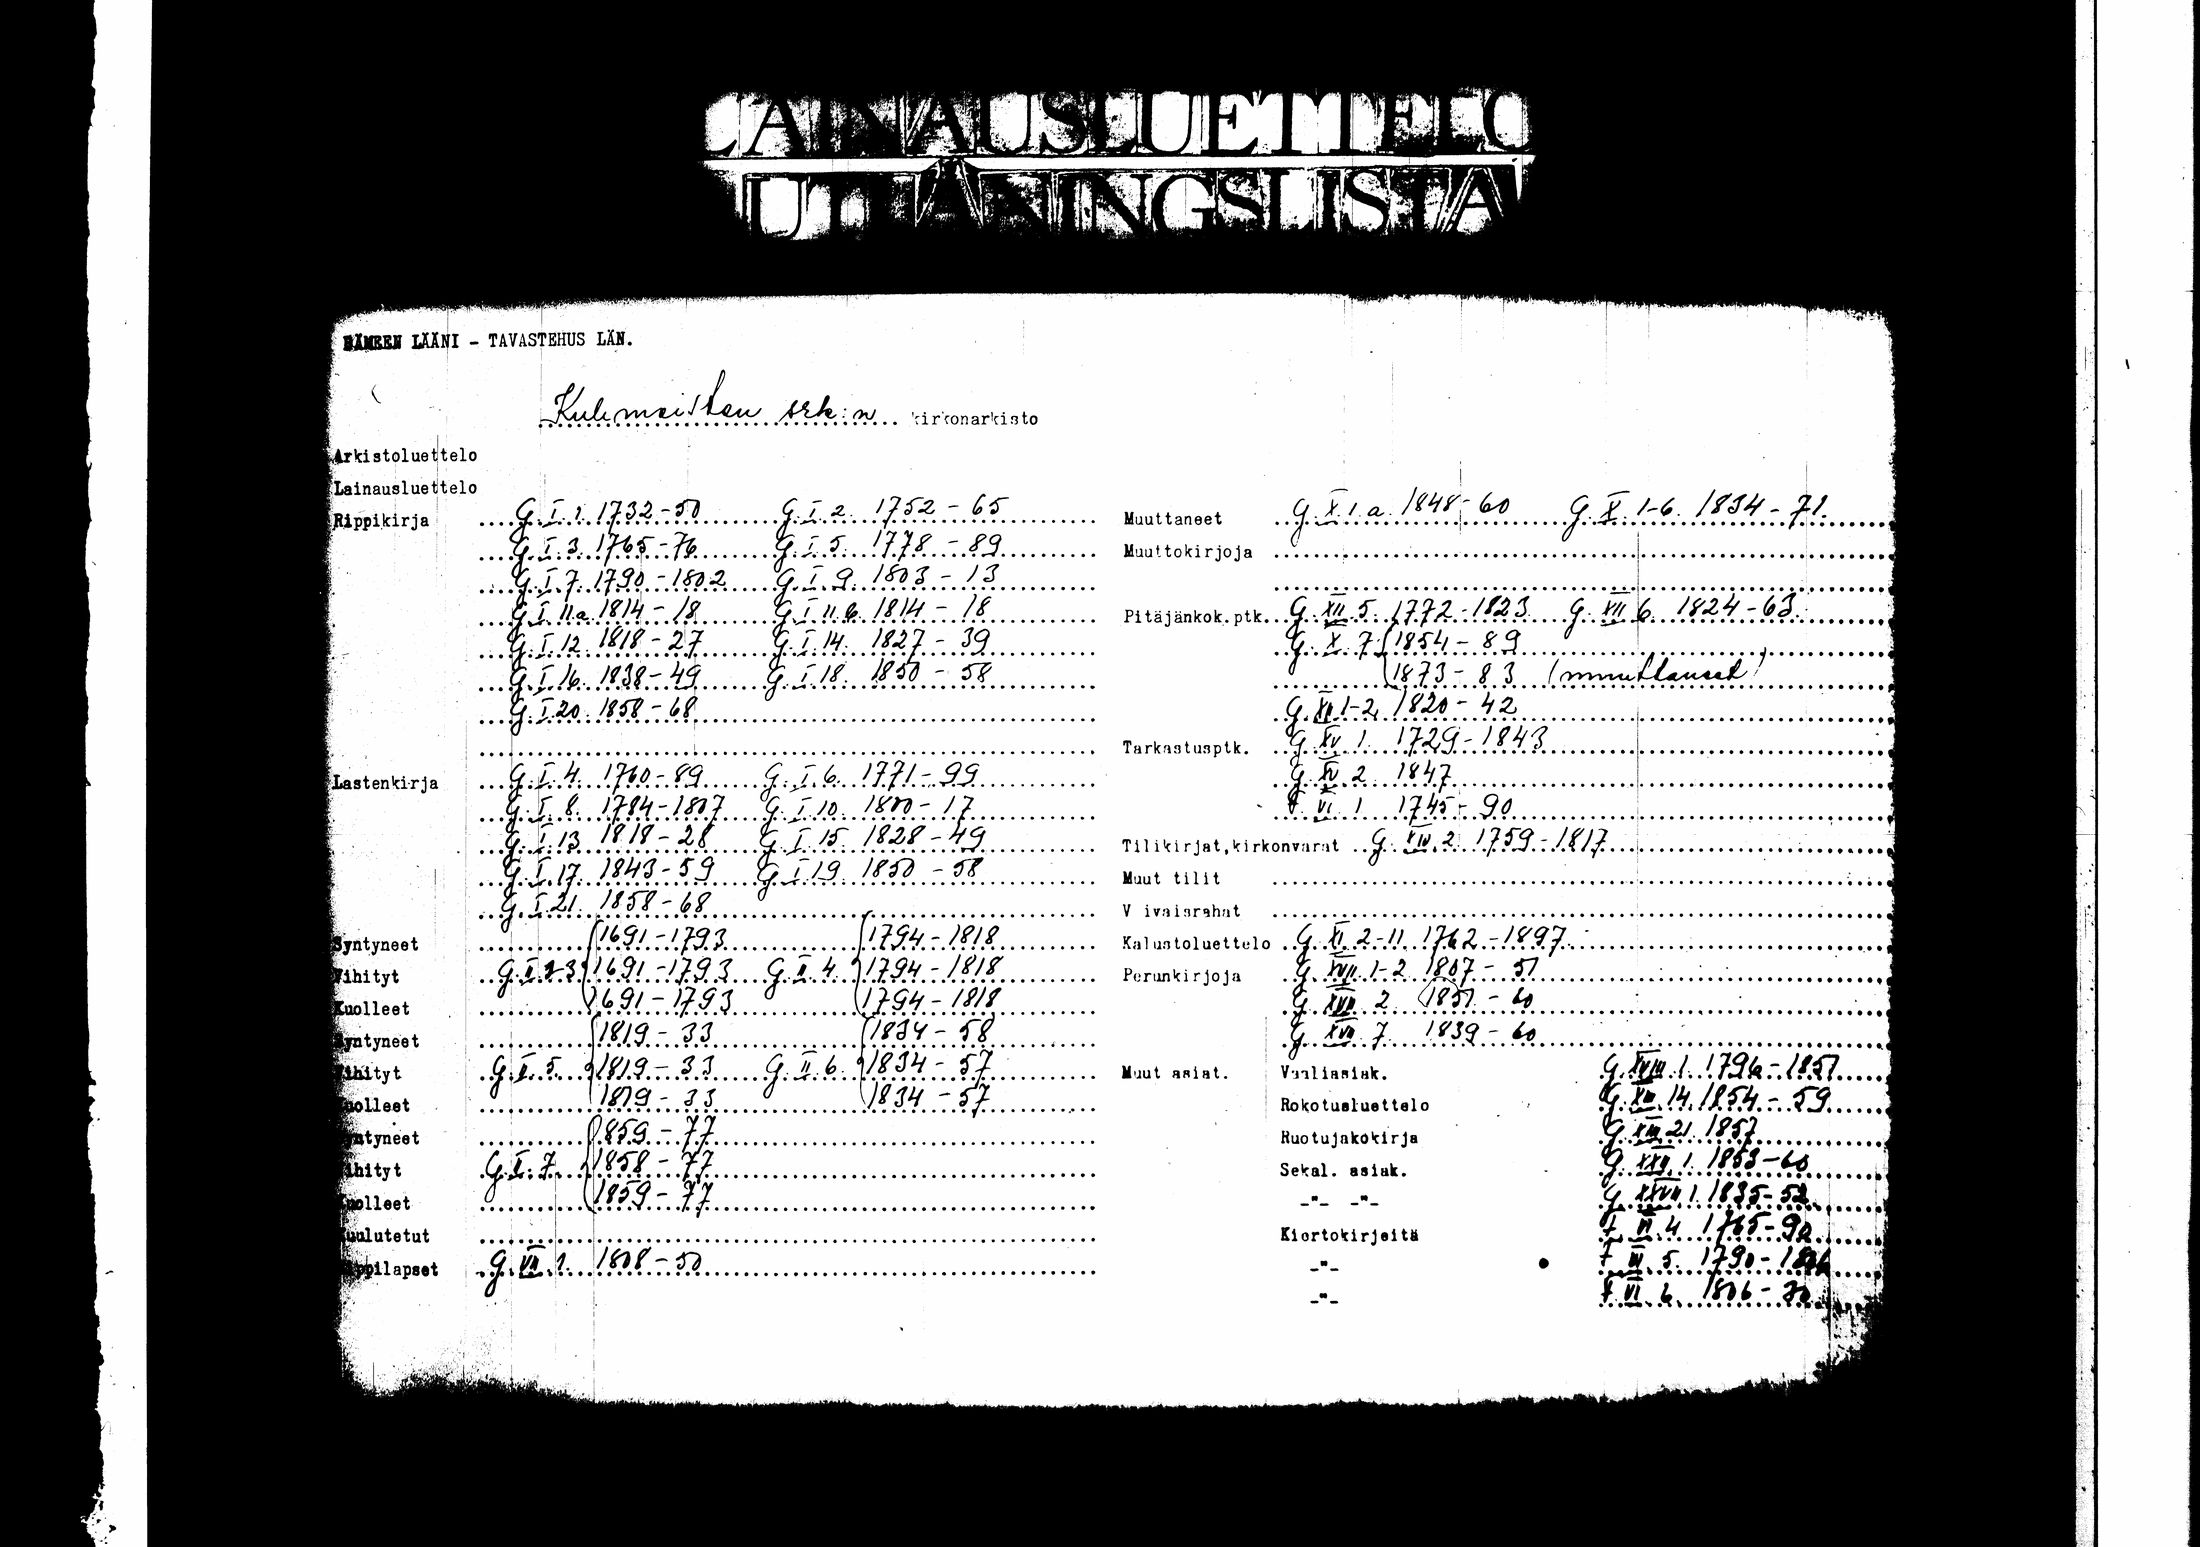 LAINAUSLUETTELO
UTLÅNINGSLISTA
HÄMEEN LÄÄNI - TAVASTEHUS LÄN.
Kuhmoisten srk:n kirkonarkisto
Arkistoluettelo
Lainausluettelo
Rippikirja G. I. 1. 1732-50 G. I. 2. 1752-65
G. I. 3. 1765-76 G. I. 5. 1778-89
G. I. 7. 1790-1802 G. I. 9. 1803-13
G. I 11a. 1814-18 G. I 11 b. 1814-18
G. I. 12. 1818-27 G. I. 14. 1827-39
G. I. 16. 1838-49 G. I. 18. 1850-58
G. I. 20. 1858-68
Lastenkirja G. I. 4. 1760-89 G. I. 6. 1771-99
G. I. 8. 1784-1807 G. I. 10. 1800-17
G. I. 13. 1818-28 G. I. 15. 1828-49
G. I. 17. 1843-59 G. I. 19. 1850-58
G. I. 21. 1858-68
Syntyneet 1691-1793 1794-1818
Vihityt G. II 2-3 1691-1793 G. II. 4. 1794-1818
Kuolleet 1691-1793 1794-1818
Syntyneet 1819-33 1834-58
Vihityt G. II. 5. 1819-33 G. II. 6. 1834-57
Kuolleet 1819-33 1834-57
Syntyneet 1859-77
Vihityt G. II. 7. 1858-77
Kuolleet 1859-77
Kuulutetut
Rippilapset G. VII. 1. 1808-50
Muuttaneet G. X. 1. a. 1848-60 G. X. 1-6. 1834-71.
Muuttokirjoja
Pitäjänkok.ptk. G. XII. 5. 1772-1823 G. XII 6. 1824-63.
G. X. 7. 1854-89
1873-83 (muuttaneet)
G. XII 1-2, 1820-42
Tarkastusptk. G. XV. 1. 1729-1843
G. XV 2. 1847
F. VI. 1. 1745-90
Tilikirjat,kirkonvarat G. XIV. 2. 1759-1817
Muut tilit
V ivaisrahat
Kalustoluettelo G. XI. 2-11. 1762-1897.
Perunkirjoja G. XVII. 1-2. 1807-51
G. XVII. 2. 1851-60
G. XVII. 7. 1839-60
Muut asiat. Vaaliasiak. G. XVIII. 1. 1796-1851
Rokotusluettelo G. 14. 1854-59
Ruotujakokirja G. 21. 1857
Sekal. asiak. G. 1. 1853-60
-"- -"- G. XXVII 1. 1835-52
Kiertokirjeitä F. VI. 4. 1765-90
-"- F. VI. 5. 1790-1806
-"- F. VI. 6. 1806-70